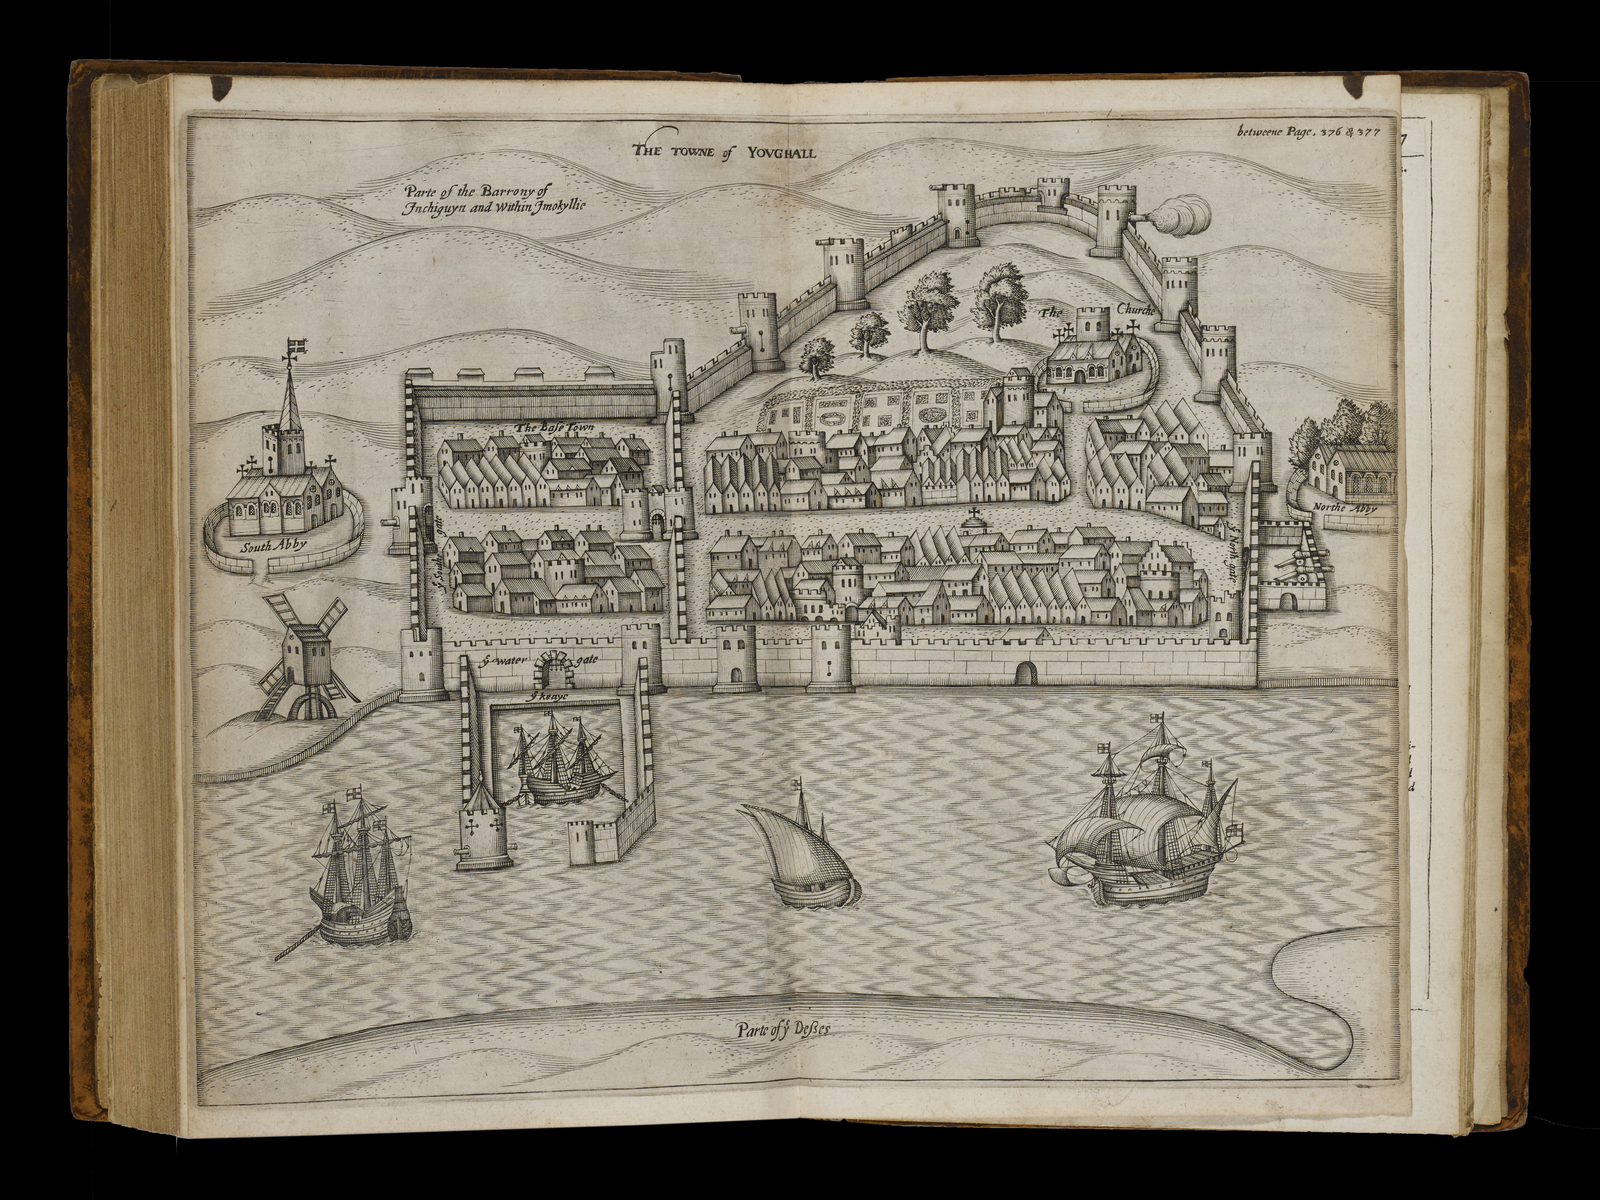 betweene Page. 376 & 377
THE TOWNE of YOVGHALL
Parte of the Barrony of
Inchiguyn and within Imokyllie
The Churche
The Base Town
South Abby
Northe Abby
ẙ South gate
ẙ North gate
ẙ water gate
ẙ keaye
Parte of ẙ Desses
7